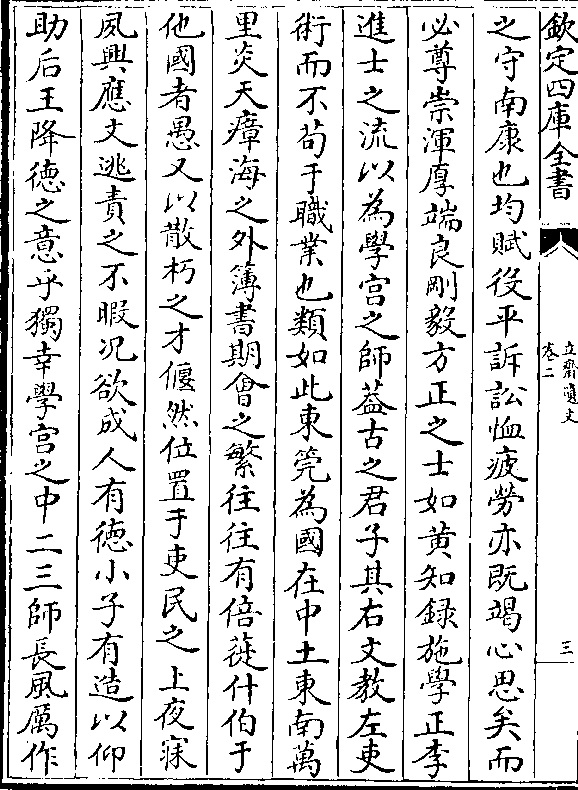 欽定四庫全書
立齋遺文
卷二
三
之守南康也均賦役平訴訟恤疲勞亦既竭心思矣而
必尊崇渾厚端良剛毅方正之士如黄知録施學正李
進士之流以為學宫之師葢古之君子其右文教左吏
術而不苟于職業也類如此東筦為國在中土東南萬
里炎天瘴海之外簿書期會之繁往往有倍蓰什伯于
他國者愚又以散朽之才偃然位置于吏民之上夜寐
夙興應文逃責之不暇况欲成人有德小子有造以仰
助后王降德之意乎獨幸學宫之中二三師長風厲作